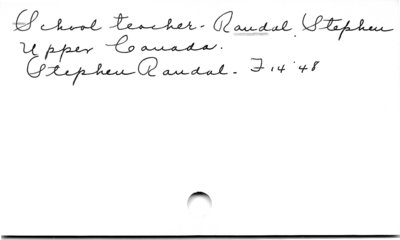 School teacher - Randal, Stephen
Upper Canada.
Stephen Randal - F 14 '48